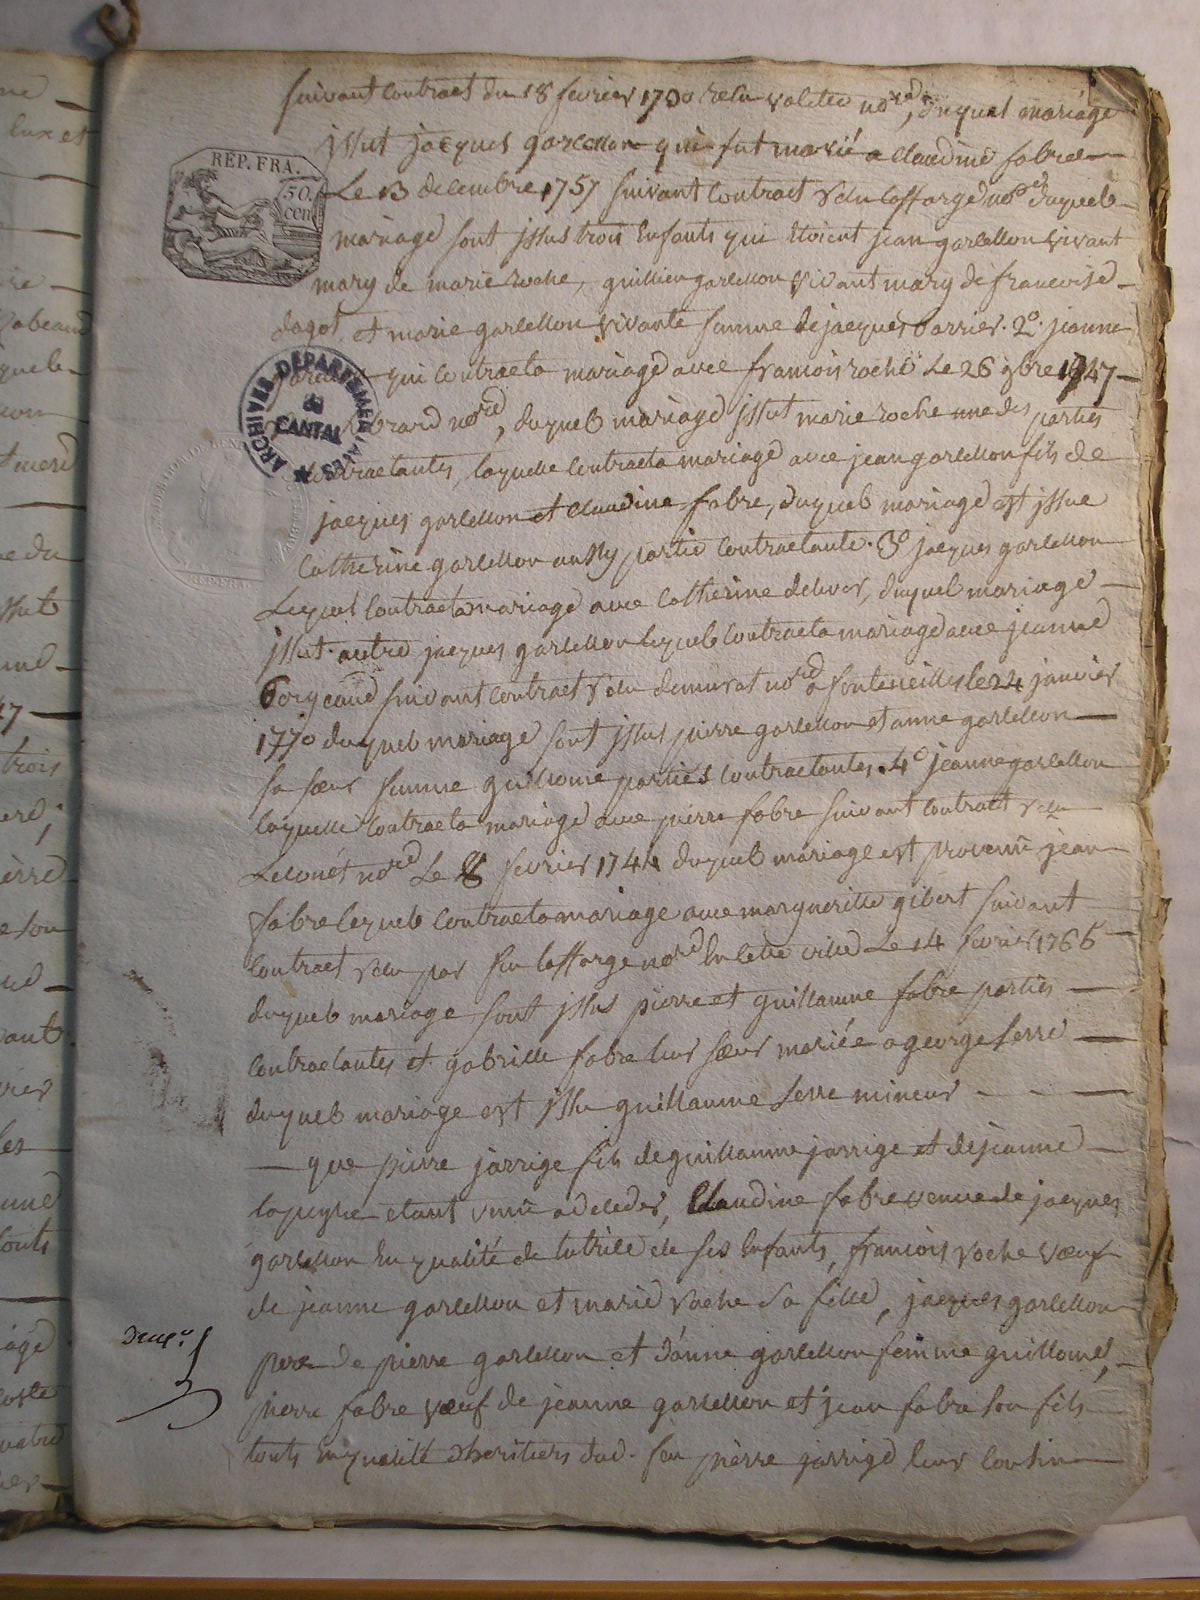 suivant contract du 18 fevrier 1730 recu valette no.re, duquel mariage
jssut jacques garcellon qui fut marié a claudine fabre
REP. FRA.
50 cen
Le 13 decembre 1757 suivant contract recu laffarge nore duquel
mariage sont jssus trois enfants qui étoient jean garcellon vivant
mary de marie roche, guillien garcellon vivant mary de francoise
dagot et marie garcellon vivante femme de jacques barrier. 2o. jeanne
qui contracta mariage avec francois roche Le 26 9bre 1747
nore, duquel mariage jssut marie roche une des parties
ARCHIVES DEPARTEMENTALES du CANTAL
contractantes, laquelle contracta mariage avec jean garcellon fils de
jacques garcellon et claudine fabre, duquel mariage est jssue
Catherine garcellon aussy partie contractante. 3o jacques garcellon
Lequel contracta mariage avec Catherine delver, duquel mariage
jssut autre jacques garcellon lequel contracta mariage avec jeanne
suivant contract recu demurat nore a fonteneilles le 24 janvier
1770 duquel mariage sont jssus pierre garcellon et anne garcellon
sa sœur femme guillome parties contractantes. 4o jeanne garcellon
laquelle contracta mariage avec pierre fabre suivant contract recu
nore Le 8 fevrier 1744 duquel mariage est provenû jean
fabre lequel contracta mariage avec margueritte gibert suivant
contract recu par feu laffarge nore en cette ville Le 14 fevrier 1766
duquel mariage sont jssus pierre et guillaume fabre parties
contractantes et gabrielle fabre leur sœur mariée a george serre
duquel mariage est jssu guillaume serre mineur
que pierre jarrige fils de guillaume jarrige et de jeanne
lapeyre etant venû a deceder, Claudine fabre veuve de jacques
garcellon en qualité de tutrice de ses enfants, francois roche vœuf
de jeanne garcellon et marie roche sa fille, jacques garcellon
pere de pierre garcellon et d'anne garcellon femme guillome,
pierre fabre vœuf de jeanne garcellon et jean fabre son fils
touts en qualité d'heritiers dud. feu pierre jarrige leur cousin